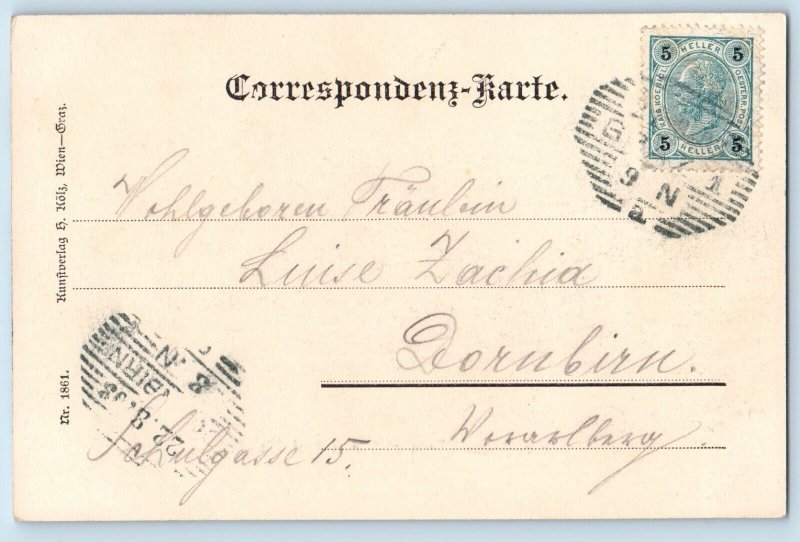 Correspondenz-Karte.
5 HELLER 5
5 HELLER 5
9 N
a
1
Wohlgeboren Fräulein
Luise Zachid
Dornbirn.
Vorarlberg
Schulgasse 15.
22.8.
8. N
Kunstverlag H. Kölz, Wien–Graz.
Nr. 1861.